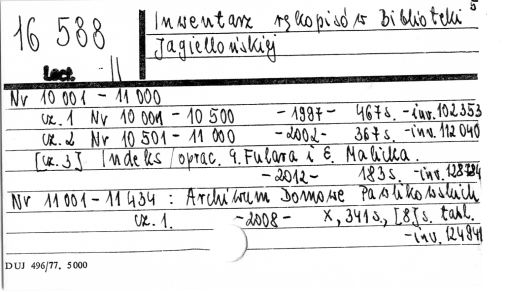 5
16 588
Inwentarz rękopisów Biblioteki
Jagiellońskiej
Lect. II
Nr 10 001 - 11 000
cz. 1 Nr 10 001 - 10 500 - 1997 - 467 s. - inw. 102353
cz. 2 Nr 10 501 - 11 000 - 2002 - 367 s. - inw. 112040
[cz. 3] Indeks / oprac. G. Fulara i E. Malicka.
- 2012 - 183 s. - inw.
Nr 11 001 - 11 434 : Archiwum Domowe Pawlikowskich
cz. 1. - 2008 - X, 341 s., [8] s. tabl.
- inw.
DUJ 496/77. 5000